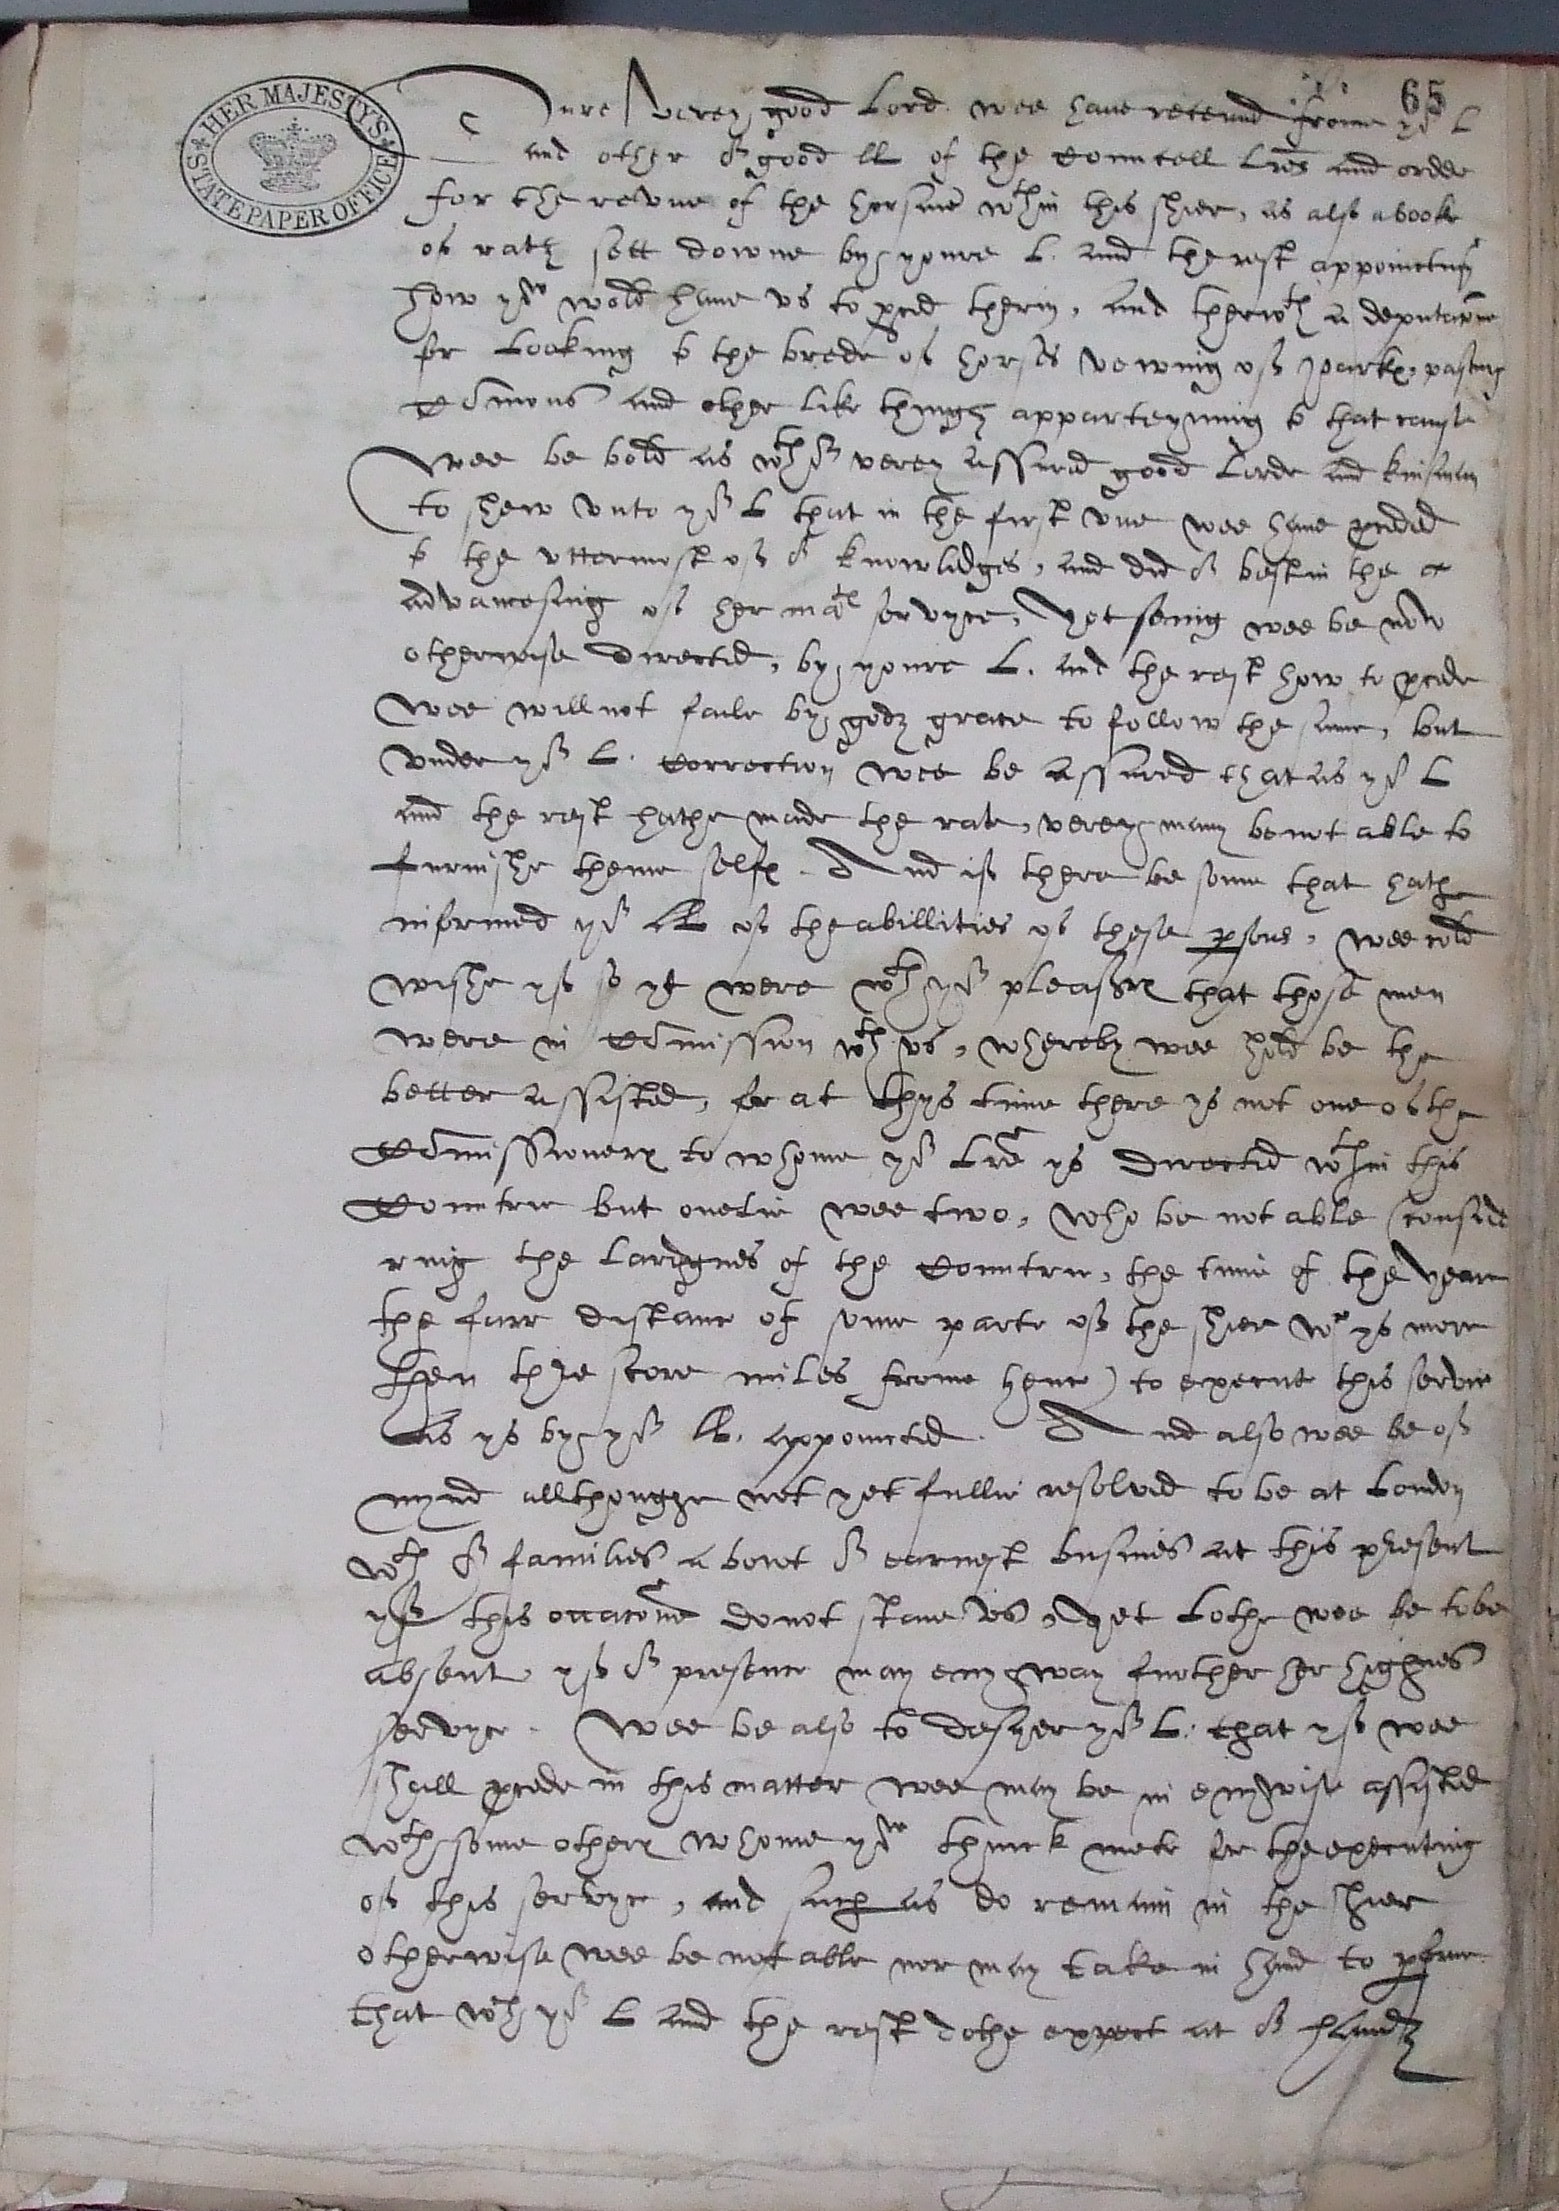 65
HER MAJESTY'S STATE PAPER OFFICE
Oure verey good Lord wee haue receaud frome yor L
and other or good LL of the Councell Lres and order
for the revue of the horsme wthin this shier, as also a booke
of rates sett downe by youre L. and the rest appoincting
how yow wold haue vs to pced therin, and therwth a deputacon
for Looking to the brede of horses vewing of parkes, pastures
Comons and other like things apparteyning to that cause
Wee be bold as wth or verey assured good Lorde and kinsman
to shew vnto yor L that in the first vue wee haue pceded
to the vttermost of or knowledges, and did or best in the
advancesing of her matie servyce, yet seing wee be now
otherwise directed, by youre L. and the rest how to pcede
wee will not faile by gods grace to follow the same, but
vnder yor L. Correction wee be assured that as yor L
and the rest hathe made the rate, verey many be not able to
furnishe theme selfes. And if there be some that hathe
informed yor LL of the abillities of these psons, wee cold
wishe yf so yt were wth yor pleasures that those men
were in Comission wth vs, whereby wee shold be the
better assisted, for at thys time there ys not one of the
Comissioners to whome yor Lre ys directed wthin this
Countrie but onelie wee two, who be not able (conside
ring the Lardgnes of the Countrie, the time of the year
the farr distanc of some parte of the shier wch ys more
then thre score miles frome henc) to execut this servic
as ys by yor LL. appoincted. And also wee be of
mynd allthoughe not yet fullie resolved to be at London
wth or families abowt or earnest busines at this present
yf this occacone do not staue vs, yet Lothe wee be to be
absent yf or presenc may eny way further her highnes
servyce. Wee be also to desyer yor L. that yf wee
shall pcede in this matter wee may be in enywise assisted
wth some others whome yow thinck mete for the executing
of this servyce, and such as do remain in the shier
otherwise wee be not able nor may take in hand to pforme
that wch yor L and the rest dothe expect at or hands